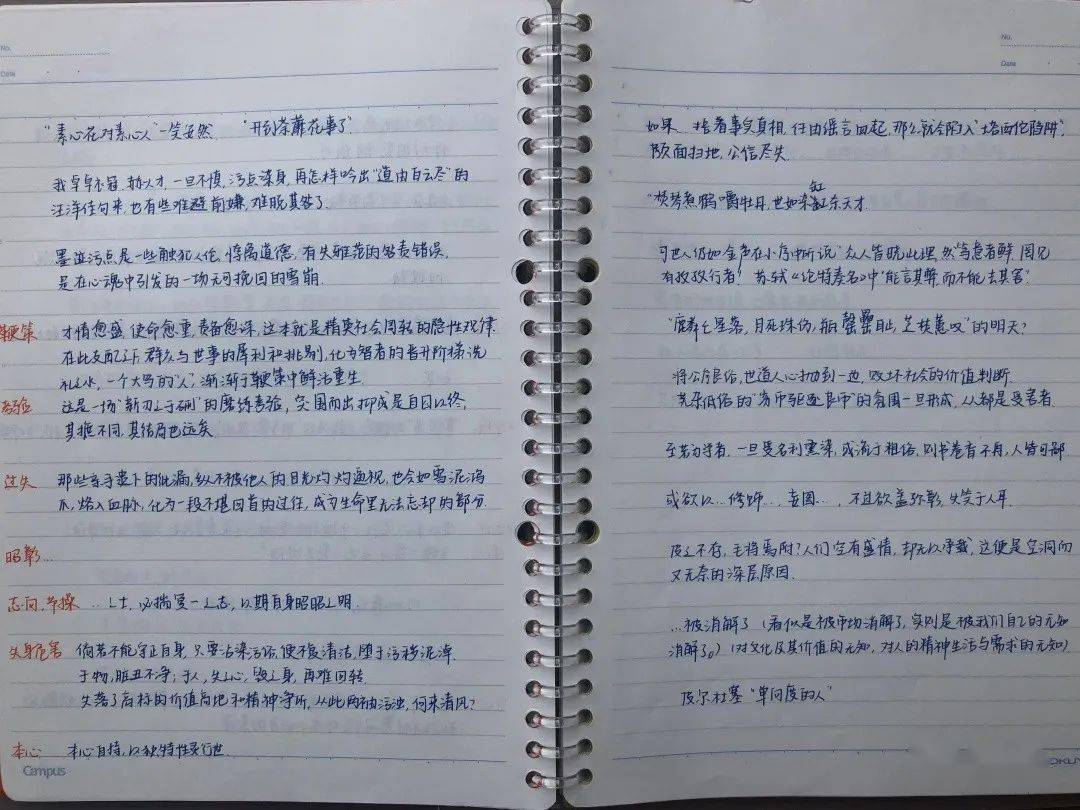 No.
Date
"素心花对素心人" 一笑安然 "开到荼蘼花事了"
我卓卓衣冠、 人才,一旦不慎,污点染身,再怎样吟出"道由白云尽"的
汪洋佳句来,也有些难避前嫌,难脱其咎了.
墨迹污点是一些触犯人伦,悖离道德,有失雅范的罪责错误,
是在心魂中引发的一场无可挽回的雪崩.
鞭策 才情愈盛,使命愈重,责备愈深,这本就是精英社会周转的隐性规律.
在此支配之下,群众与世事的犀利和挑剔,化为智者的晋升阶梯、洗
礼之水,一个大写的"人",渐渐于鞭策中鲜活重生.
考验 这是一场"新刃之于硎"的磨练考验,突围而出抑或是自囚以终,
其概不同,其结局已远矣.
过失 那些亲手丢下的纰漏,纵不被他人的目光灼灼逼视,也会如雪泥鸿
爪,烙入血脉,化为一段不堪回首的过往,成为生命里无法忘却的部分.
昭彰...
志向、节操 ...之士,必揣冥一之志,以期自身昭昭之明.
失身危害 倘若不能守正自身,只要沾染污俗,便不复清洁,堕于污秽泥淖
于物,脏丑不净;于人,失之心,毁之身,再难回转.
失落了启标的价值高地和精神守所,从此两袖污浊,何来清风?
本心 本心自持,以独特性灵行世.
Campus
No.
Date
如果...捂着事实真相,任由谣言四起,那么就会陷入"塔西佗陷阱",
颜面扫地,公信尽失.
"焚琴煮鹤"嚼牡丹,世如染缸杀天才.
缸
可世人仍如金声在小序中所说"众人皆晓此理,然当患者鲜,罔见
有孜孜行者!"苏轼《伦特奏名》中"能言其弊而不能去其害".
"麒麟亡星落,月死珠伤,瓶罄罍耻,芝焚蕙叹"的明天?
将公序良俗,世道人心抛到一边,败坏社会的价值判断.
恶杀低俗的"劣币驱逐良币"的氛围一旦形成,人人都是受害者.
至若为学者,一旦受名利熏染,或流于粗俗,则书卷香不再,人皆可鄙
或欲以...修饰...,妄图...,不且欲盖弥彰,失笑于人耳.
皮之不存,毛将焉附?人们空有盛情,却无以承载,这便是空洞而
又无奈的深层原因.
...被消解了(看似是被市场消解了,实则是被我们自己的无知
消解了。)(对文化及其价值的无知,对人的精神生活与需求的无知)
皮尔杜塞"单向度的人"